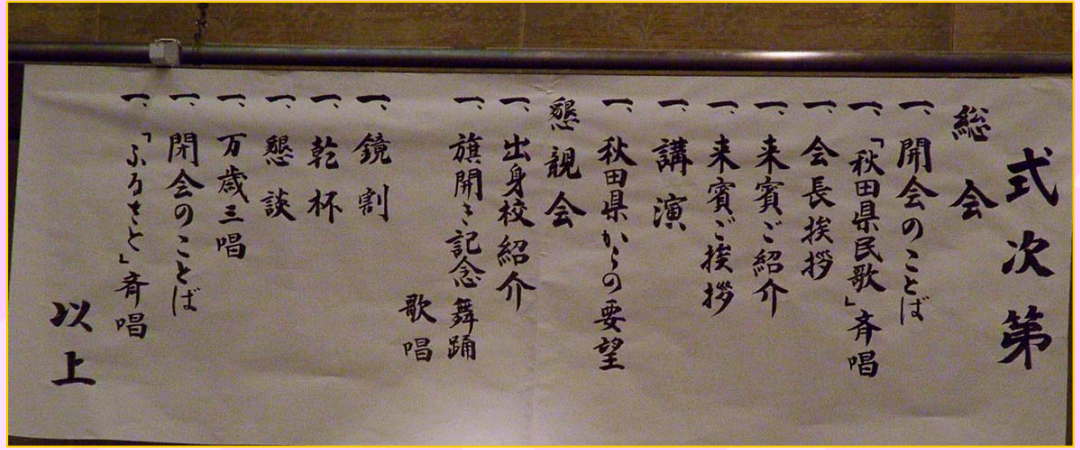 式次第
総会
一、開会のことば
一、「秋田県民歌」斉唱
一、会長挨拶
一、来賓ご紹介
一、来賓ご挨拶
一、講演
一、秋田県からの要望
懇親会
一、出身校紹介
一、旗開き記念舞踊
歌唱
一、鏡割
一、乾杯
一、懇談
一、万歳三唱
一、閉会のことば
一、「ふるさと」斉唱
以上